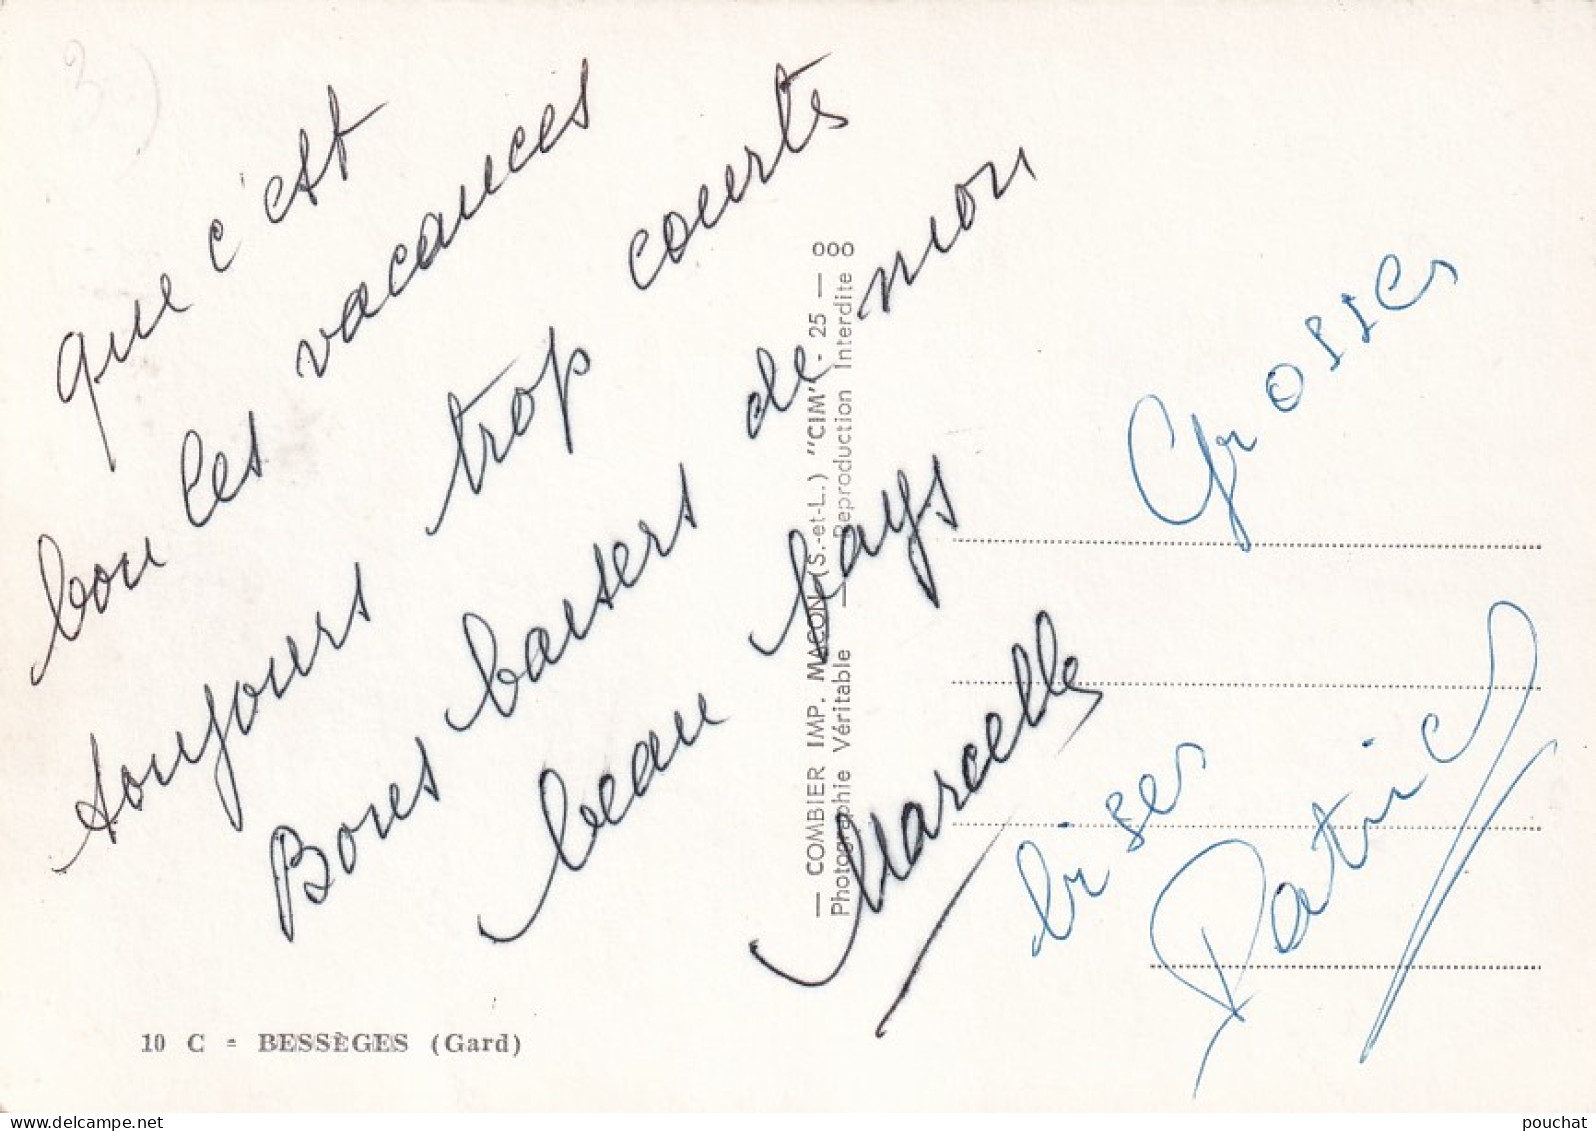 3)
que c'est
bon les vacances
toujours trop courts
Bons baisers de mon
beau pays
Marcelle
Grosses
bises
Patrick
— COMBIER IMP. MACON (S.-et-L.) "CIM" - 25 —
Photographie Véritable — Reproduction Interdite
10 C - BESSÈGES (Gard)
pouchat